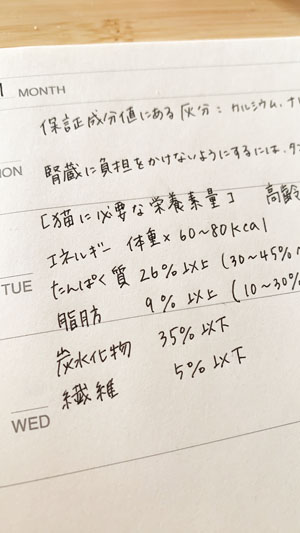 MONTH
保証成分値にある灰分：カルシウム、ナ
ON
腎臓に負担をかけないようにするには、タン
[猫に必要な栄養素量] 高齢
エネルギー 体重×60~80kcal
TUE
たんぱく質 26%以上 (30~45%
脂肪 9%以上 (10~30%
炭水化物 35%以下
繊維 5%以下
WED